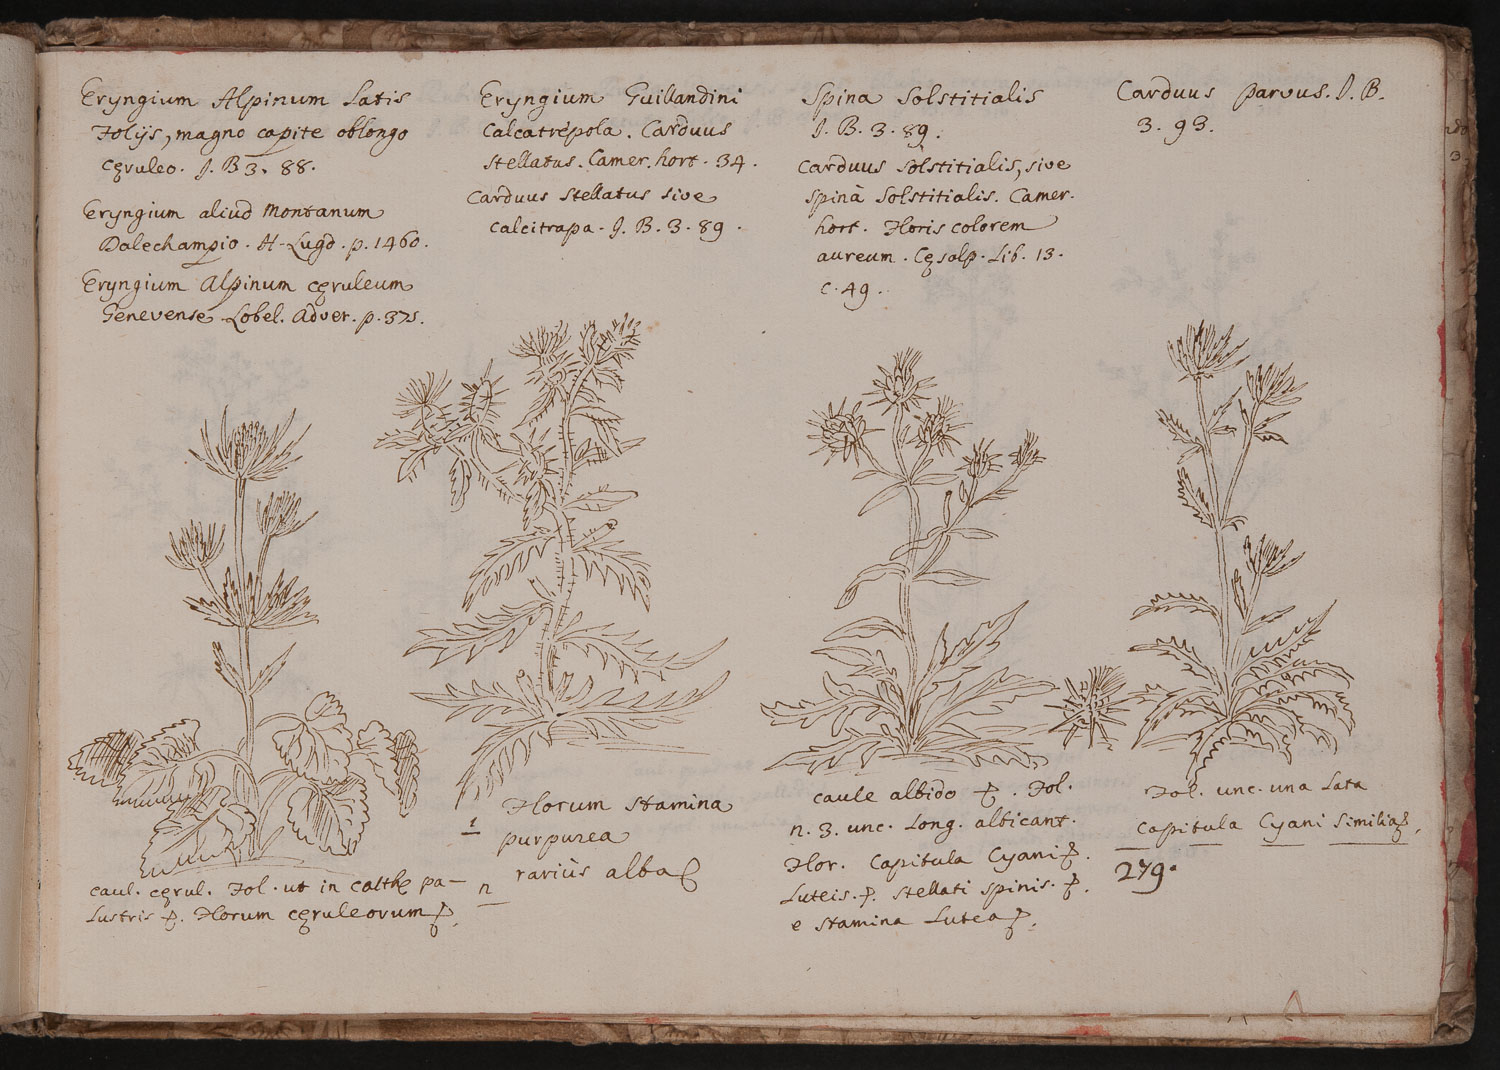 Eryngium Alpinum Latis
Folijs, magno capite oblongo
cęruleo. J. B 3. 88.
Eryngium aliud Montanum
Dalechampio. H. Lugd. p. 1460.
Eryngium Alpinum cęruleum
Genevense Lobel. Adver. p. 375.
Eryngium Guillandini
Calcatrepola. Carduus
stellatus. Camer. hort. 34.
Carduus stellatus sive
calcitrapa. J. B. 3. 89.
Spina Solstitialis
J. B. 3. 89.
Carduus Solstitialis, sive
Spina Solstitialis. Camer.
hort. Floris colorem
aureum. Cęsalp. Lib. 13.
c. 49.
Carduus parvus. J. B.
3. 93.
caul. cęrul. Fol. ut in calthę pa-
Lustris. Florum cęruleorum
1 Florum stamina
purpurea
n rarius alba
caule albido. Fol.
n. 3. unc. Long. albicant.
Flor. Capitula Cyani.
Luteis. stellati spinis.
e stamina Lutea.
Fol. unc. una Lata
Capitula Cyani Similia,
279.